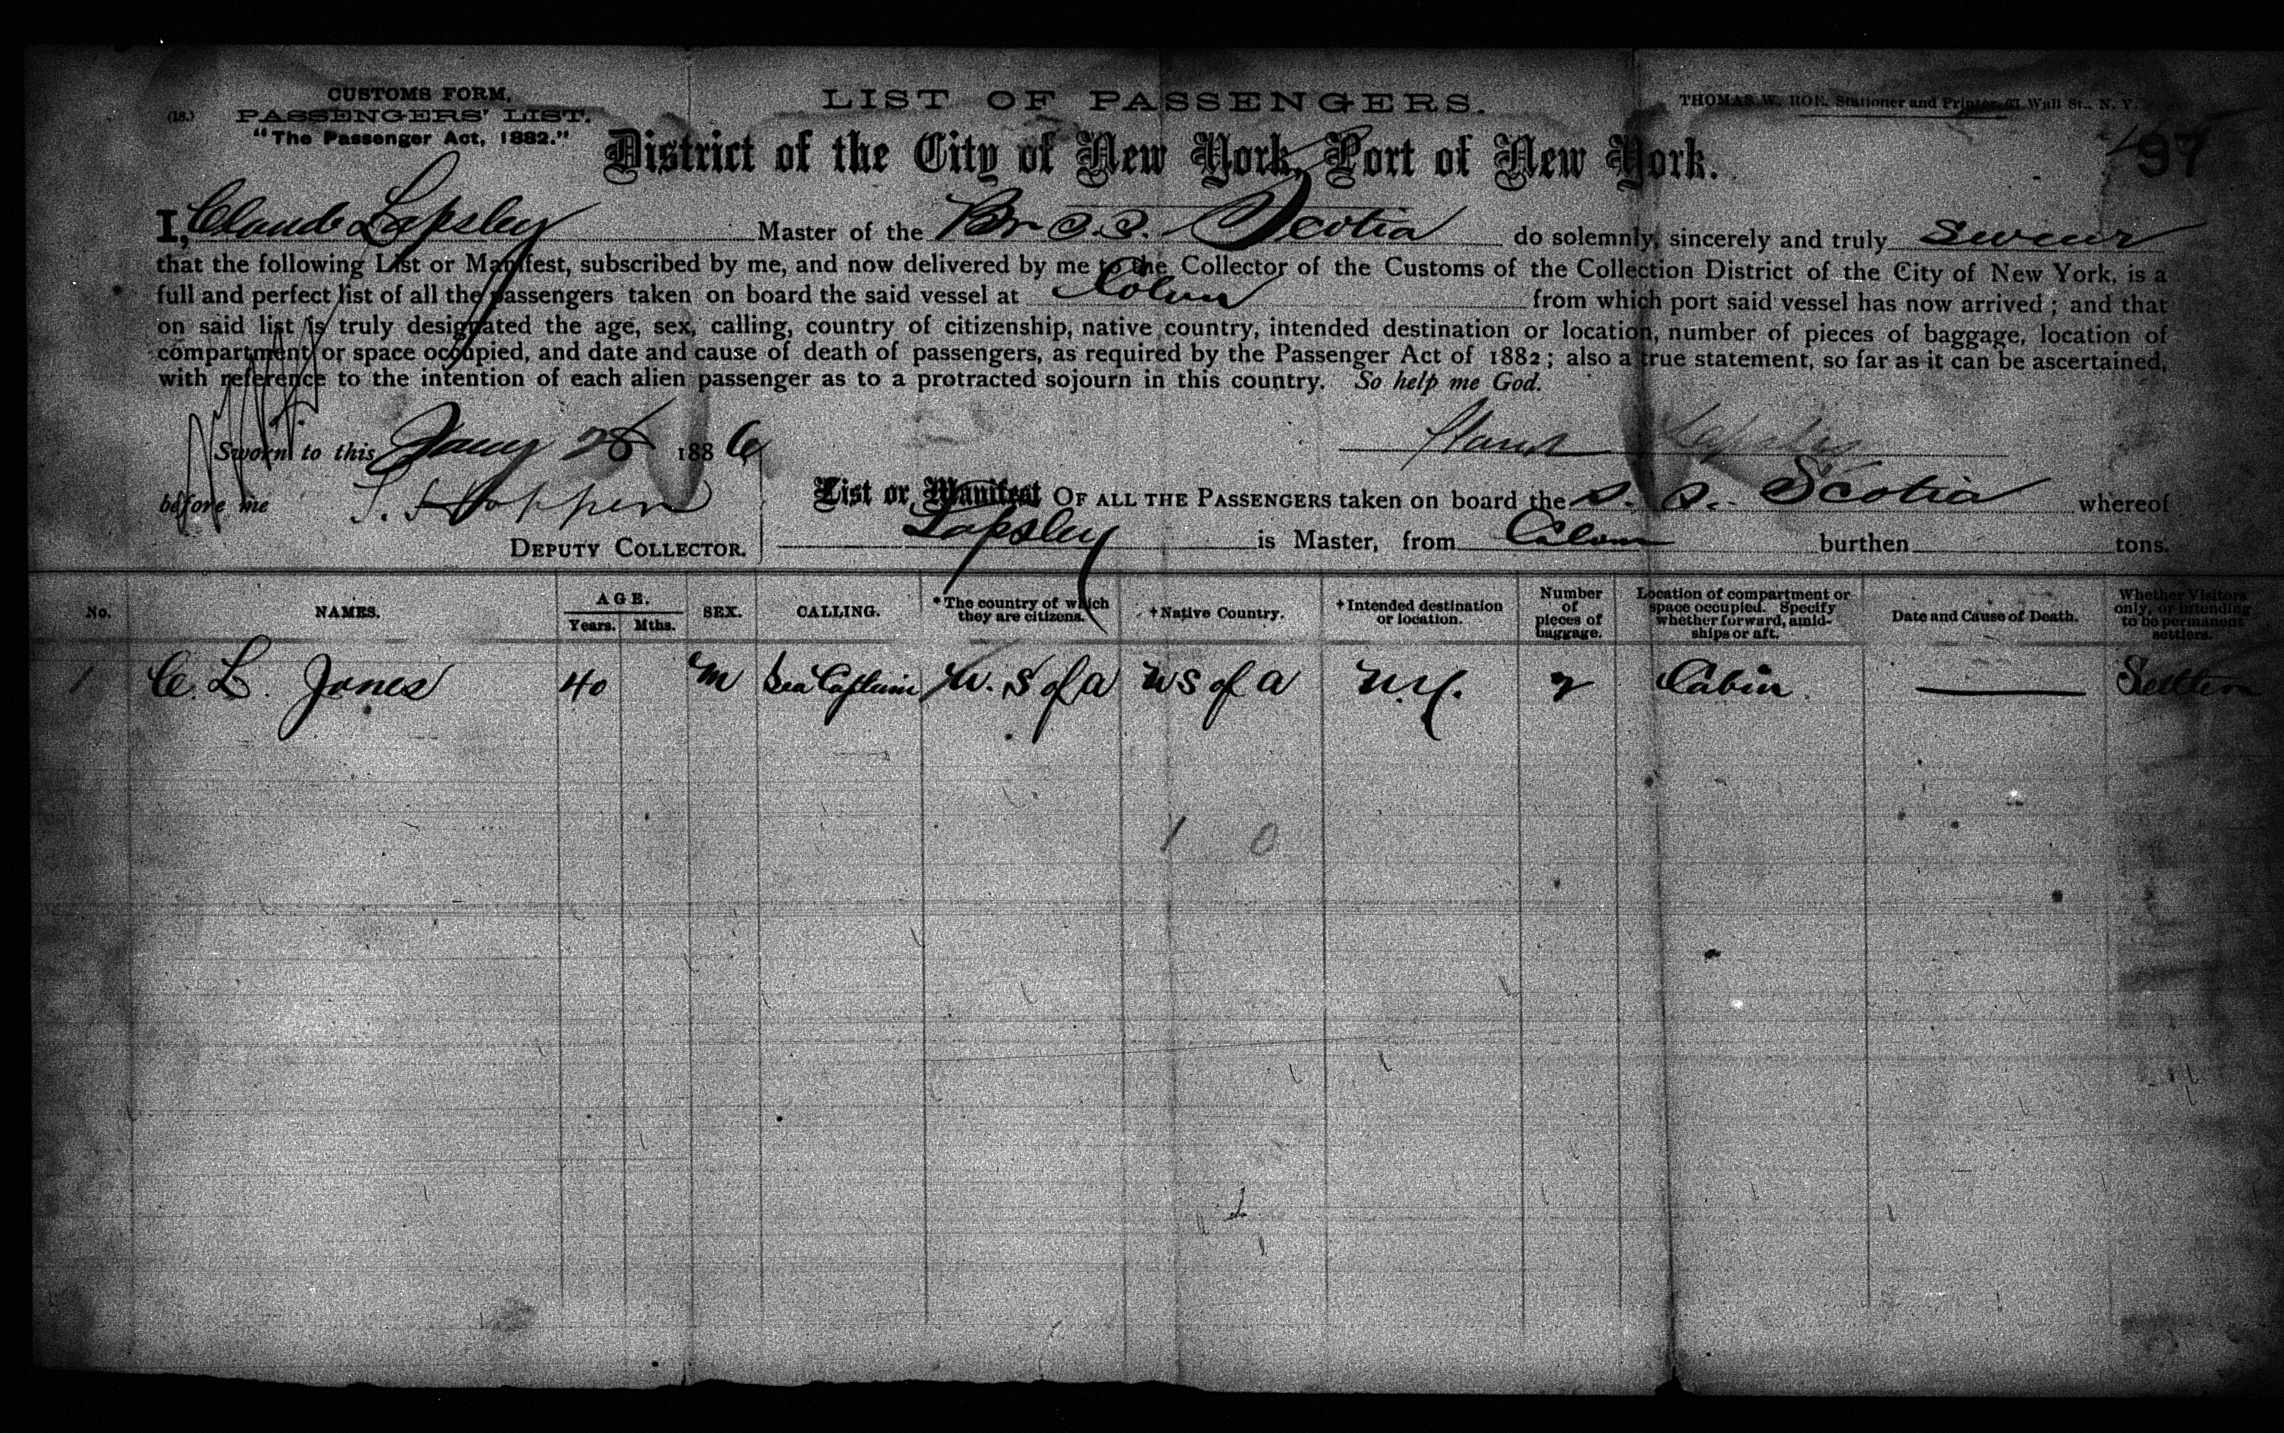 CUSTOMS FORM,
(18.) PASSENGERS' LIST.
"The Passenger Act, 1882."
LIST OF PASSENGERS.
THOMAS W. ROE, Stationer and Printer, 61 Wall St., N. Y.
97
District of the City of New York, Port of New York.
I, Claude Lapsley Master of the Br S.S. Scotia do solemnly, sincerely and truly swear
that the following List or Manifest, subscribed by me, and now delivered by me to the Collector of the Customs of the Collection District of the City of New York, is a
full and perfect list of all the passengers taken on board the said vessel at Colon from which port said vessel has now arrived; and that
on said list is truly designated the age, sex, calling, country of citizenship, native country, intended destination or location, number of pieces of baggage, location of
compartment or space occupied, and date and cause of death of passengers, as required by the Passenger Act of 1882; also a true statement, so far as it can be ascertained,
with reference to the intention of each alien passenger as to a protracted sojourn in this country. So help me God.
Sworn to this Jany 28 1886
Claude Lapsley
before me
DEPUTY COLLECTOR.
List or Manifest OF ALL THE PASSENGERS taken on board the S. S. Scotia whereof
Lapsley is Master, from Colon burthen tons.
No. NAMES. AGE. Years. Mths. SEX. CALLING. *The country of which they are citizens. †Native Country. †Intended destination or location. Number of pieces of baggage. Location of compartment or space occupied. Specify whether forward, amidships or aft. Date and Cause of Death. Whether Visitors only, or intending to be permanent settlers.
1 C. L. Jones 40 M Sea Captain U. S of A U S of A N.Y. 2 Cabin
1 0